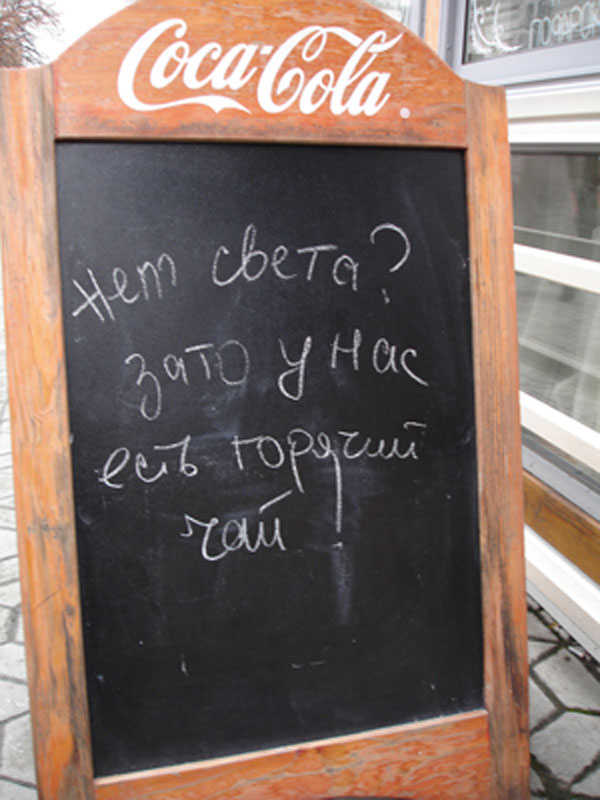 Coca-Cola
нет света?
зато у нас
есть горячий
чай!